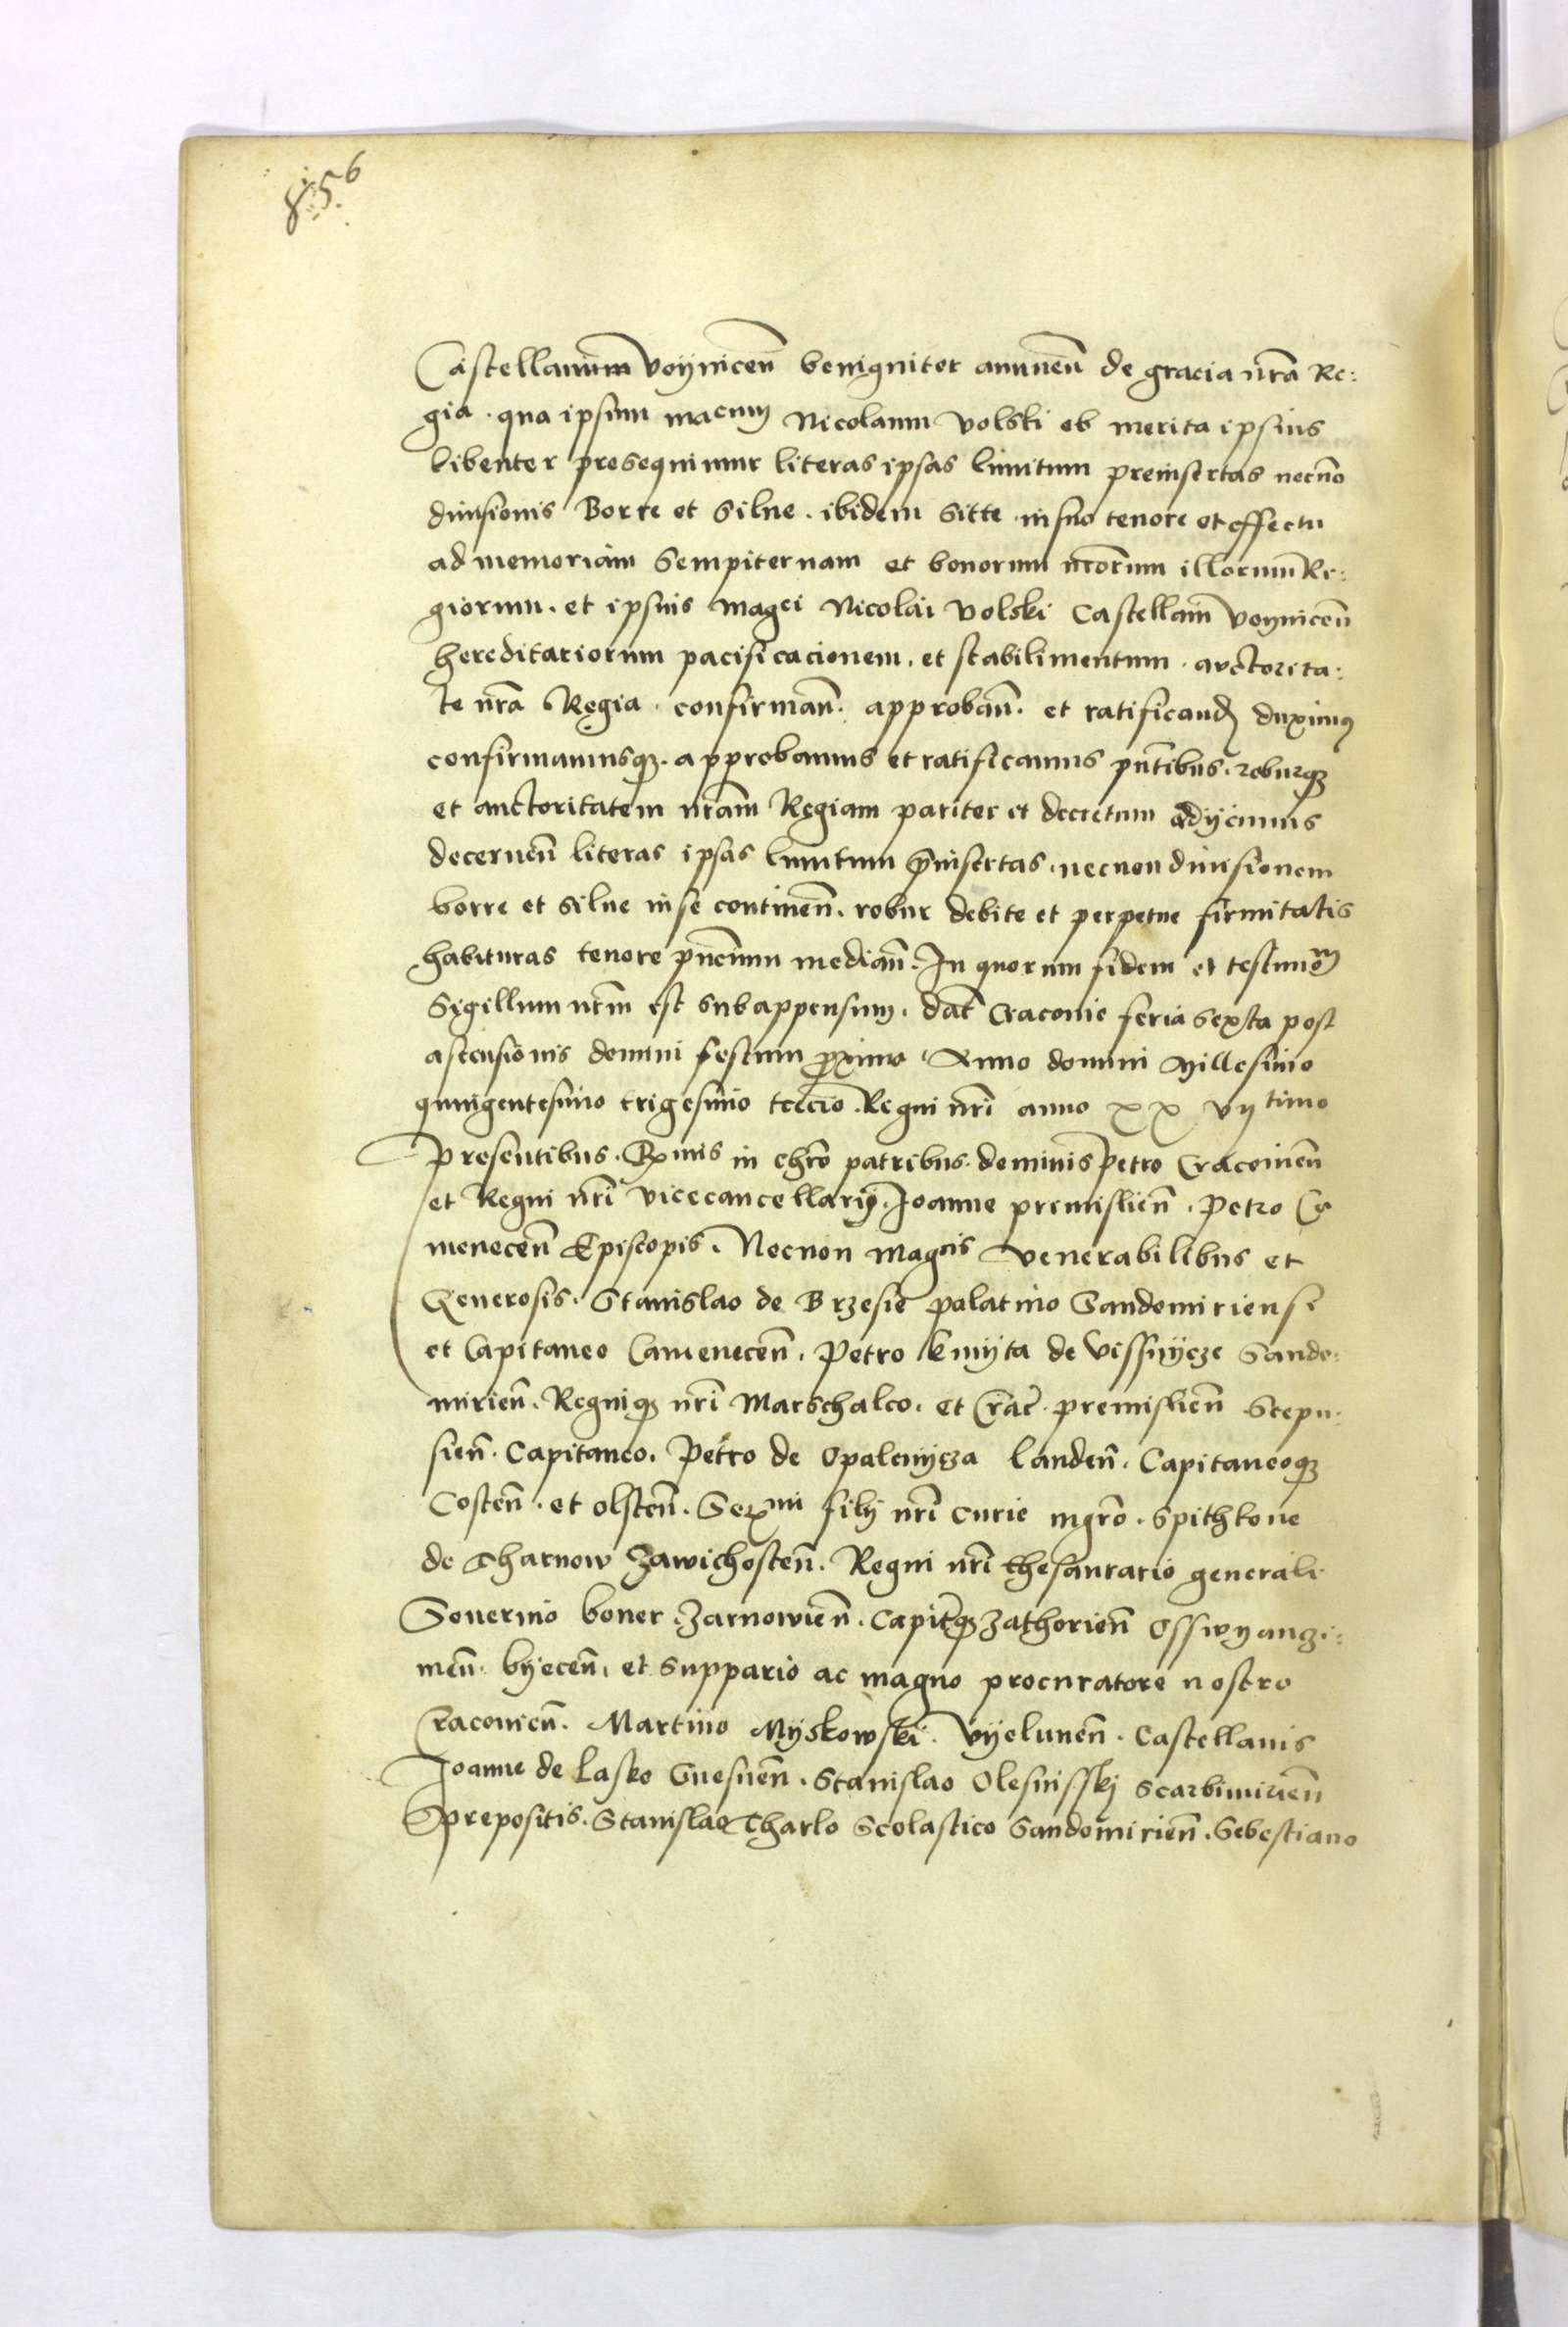 856
Castellanum voynicen̄ benigniter annuen̄ de gracia nr̄a Re:
gia . qua ipsum mag̃cum Nicolaum volski ob merita ipsius
libenter prosequimur literas ipsas limitum preinsertas necnō
diuisionis Borre et silue . ibidem sitte in suo tenore et effectu
ad memoriam sempiternam et bonorum nr̄orum illorum Re:
giorum . et ipsius magci Nicolai volski Castellani voynicen̄
hereditariorum pacificacionem . et stabilimentum . auctorita:
te nr̄a Regia . confirman̄ . approban̄ . et ratificand̄ duximus
confirmamusq; . approbamus et ratificamus pn̄tibus . roburq;
et auctoritatem nr̄am Regiam pariter et decretum adijcimus
decernen̄ literas ipsas limitum p̄insertas . necnon diuisionem
borre et silue in se continen̄ . robur debite et perpetue firmitatis
habituras tenore pn̄cium median̄ . In quorum fidem et testimōm
Sigillum nr̄m est subappensum . dat̄ Cracouie feria sexta post
ascensionis domini festum proximo . Anno domini Millesimo
quingentesimo trigesimo tercio . Regni nr̄i anno xx vijtimo
Presentibus . Rx̄mis in chr̄o patribus . dominis Petro Cracouien̄
et Regni nr̄i vicecancellario . Joanne premislien̄ . Petro Ca
menecen̄ Episcopis . Necnon magcis venerabilibus et
Generosis . Stanislao de Brzesie palatino Sandomiriense
et Capitaneo Camenecen̄ . Petro kmyta de vissnycze Sando:
mirien̄ . Regniq; nr̄i Marschalco . et Crac̄ . premislien̄ Scepu:
sien̄ . Capitaneo . Petro de Opalenycza landen̄ . Capitaneoq;
Costen̄ . et olsten̄ . Serx̄mi filij nr̄i Curie mgr̄o . Spithkone
de Tharnow Zawichosten̄ . Regni nr̄i thesaurario generali
Seuerino boner . Zarnowien̄ . Capit̄q; Zathorien̄ Osswyanczi:
men̄ . byecen̄ . et suppario ac magno procuratore nostro
Cracouien̄ . Martino Myskowski . vyelunen̄ . Castellanis
Joanne de lasko Gnesnen̄ . Stanislao Olesnisskj scarbimirien̄
prepositis . Stanislao Tharlo Scolastico Sandomirien̄ . Sebestiano